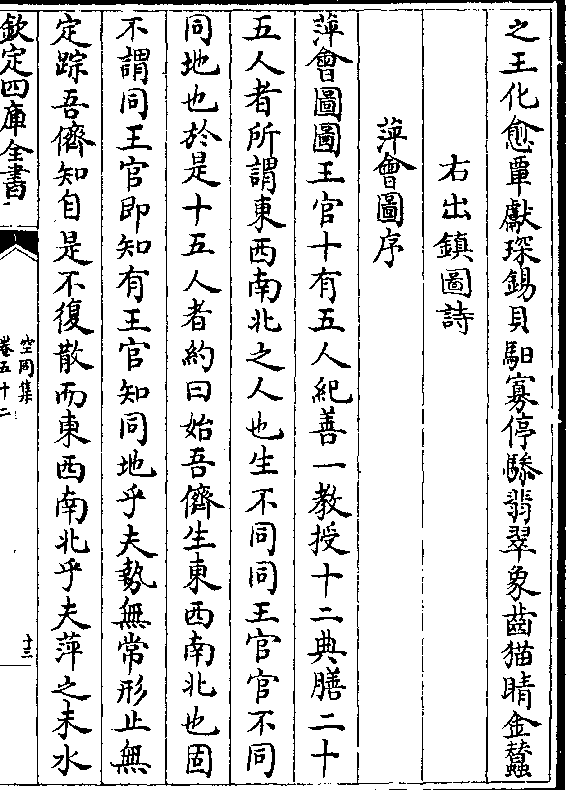 之王化愈覃獻琛錫貝馹寡停驂翡翠象齒猫睛金蠶
右出鎮圖詩
萍會圖序
萍會圖圖王官十有五人紀善一教授十二典膳二十
五人者所謂東西南北之人也生不同同王官官不同
同地也於是十五人者約曰始吾儕生東西南北也固
不謂同王官即知有王官知同地乎夫勢無常形止無
定踪吾儕知自是不復散而東西南北乎夫萍之未水
欽定四庫全書
空同集
卷五十二
十三